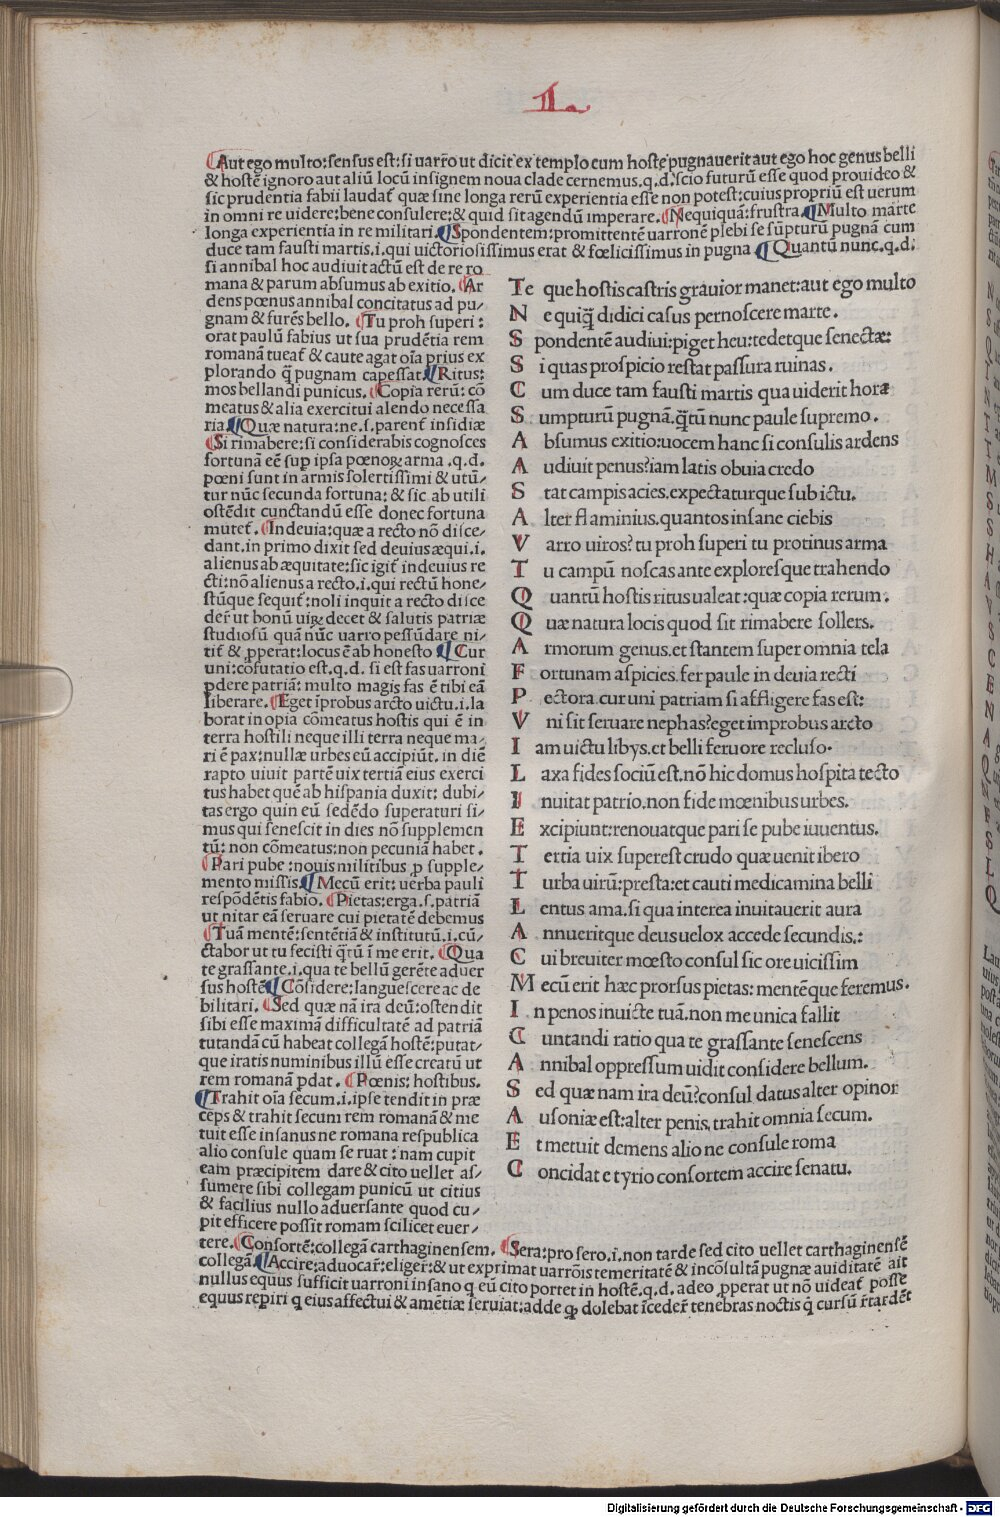 L
Aut ego multo:sensus est:si uarro ut dicit ex templo cum hoste pugnauerit aut ego hoc genus belli
& hostẽ ignoro aut aliũ locũ insignem noua clade cernemus.q.d:scio futurũ esse quod prouideo &
sic prudentia fabii laudat quæ sine longa rerũ experientia esse non potest:cuius propriũ est uerum
in omni re uidere:bene consulere:& quid sit agendũ imperare. Nequiquã:frustra. Multo marte
longa experientia in re militari. Spondentem:promittentẽ uarronẽ plebi se sũpturũ pugnã cum
duce tam fausti martis.i.qui uictoriosissimus erat & fœlicissimus in pugna Quantũ nunc.q.d:
si annibal hoc audiuit actũ est de re ro
mana & parum absumus ab exitio. Ar
dens pœnus annibal concitatus ad pu⸗
gnam & furẽs bello. Tu proh superi:
orat paulũ fabius ut sua prudẽtia rem
romanã tueat & caute agat oĩa prius ex
plorando q̃ pugnam capessat Ritus:
mos bellandi punicus. Copia rerũ: cõ
meatus & alia exercitui alendo necessa
ria. Quæ natura:ne.s.parent insidiæ
Si rimabere:si considerabis cognosces
fortunã eẽ sup ipsa pœnoꝝ arma.q.d.
pœni sunt in armis solertissimi & utũ⸗
tur nũc secunda fortuna: & sic ab utili
ostẽdit cunctandũ esse donec fortuna
mutet. In deuia:quæ a recto nõ disce⸗
dant.in primo dixit sed deuius æqui.i.
alienus ab æquitate:sic igit in deuius re
cti:nõ alienus a recto.i.qui rectũ hone⸗
stũque sequit:noli inquit a recto disce
der ut bonũ uiꝝ decet & salutis patriæ
studiosũ quã nũc uarro pessũdare ni⸗
tit & pperat:locus ẽ ab honesto Cur
uni:cõfutatio est.q.d. si est fas uarroni
pdere patriã: multo magis fas ẽ tibi eã
liberare. Eget ĩprobus arcto uictu.i.la
borat inopia cõmeatus hostis qui ẽ in
terra hostili neque illi terra neque ma⸗
ri ẽ pax:nullæ urbes eũ accipiũt. in diẽ
rapto uiuit partẽ uix tertiã eius exerci
tus habet quẽ ab hispania duxit: dubi⸗
tas ergo quin eũ sedẽdo superaturi si⸗
mus qui senescit in dies nõ supplemen
tũ: non cõmeatus:non pecuniã habet.
Pari pube:nouis militibus p supple⸗
mento missis. Mecũ erit: uerba pauli
respõdẽtis fabio. Pietas:erga.s.patriã
ut nitar eã seruare cui pietatẽ debemus
Tuã mentẽ:sentẽtiã & institutũ.i.cũ⸗
ctabor ut tu fecisti q̃tũ ĩ me erit. Qua
te grassante.i.qua te bellũ gerẽte aduer
sus hostẽ Cõsidere:languescere ac de
bilitari. Sed quæ nã ira deũ:ostendit
sibi esse maximã difficultatẽ ad patriã
tutandã cũ habeat collegã hostẽ:putat⸗
que iratis numinibus illũ esse creatũ ut
rem romanã pdat. Pœnis: hostibus.
Trahit oĩa secum.i.ipse tendit in præ
ceps & trahit secum rem romanã & me
tuit esse insanus ne romana respublica
alio consule quam se ruat: nam cupit
eam præcipitem dare & cito uellet as⸗
sumere sibi collegam punicũ ut citius
& facilius nullo aduersante quod cu⸗
pit efficere possit romam scilicet euer⸗
tere. Consortẽ:collegã carthaginensem. Sera:pro sero.i.non tarde sed cito uellet carthaginensẽ
collegã. Accire:aduocar:eliger:& ut exprimat uarrõis temeritatẽ & incõsultã pugnæ auiditatẽ ait
nullus equus sufficit uarroni insano q eũ cito portet in hostẽ.q.d.adeo pperat ut nõ uideat posse
equus repiri q eius affectui & amẽtiæ seruiat:adde ꝙ dolebat ĩceder tenebras noctis q̃ cursũ rtardẽt
Te que hostis castris grauior manet:aut ego multo
N equiq̃ didici casus pernoscere marte.
S pondentẽ audiui:piget heu:tedetque senectæ:
S i quas prospicio restat passura ruinas.
C um duce tam fausti martis qua uiderit hora
S umpturũ pugnã.q̃tũ nunc paule supremo.
A bsumus exitio:uocem hanc si consulis ardens
A udiuit penus?iam latis obuia credo
S tat campis acies.expectaturque sub ictu.
A lter flaminius.quantos insane ciebis
V arro uiros?tu proh superi tu protinus arma
T u campũ noscas ante exploresque trahendo
Q uantũ hostis ritus ualeat:quæ copia rerum:
Q uæ natura locis quod sit rimabere sollers.
A rmorum genus.et stantem super omnia tela
F ortunam aspicies.fer paule in deuia recti
P ectora cur uni patriam si affligere fas est:
V ni sit seruare nephas?eget improbus arcto
I am uictu libys.et belli feruore recluso.
L axa fides sociũ est.nõ hic domus hospita tecto
I nuitat patrio.non fide mœnibus urbes.
E xcipiunt:renouatque pari se pube iuuentus.
T ertia uix superest crudo quæ uenit ibero
T urba uirũ:presta:et cauti medicamina belli
L entus ama.si qua interea inuitauerit aura
A nnueritque deus uelox accede secundis.:
C ui breuiter mœsto consul sic ore uicissim
M ecũ erit hæc prorsus pietas: mentẽque feremus.
I n penos inuicte tuã.non me unica fallit
C untandi ratio qua te grassante senescens
A nnibal oppressum uidit considere bellum.
S ed quæ nam ira deũ?consul datus alter opinor
A usoniæ est:alter penis.trahit omnia secum.
E t metuit demens alio ne consule roma
C oncidat e tyrio consortem accire senatu.
Digitalisierung gefördert durch die Deutsche Forschungsgemeinschaft - DFG